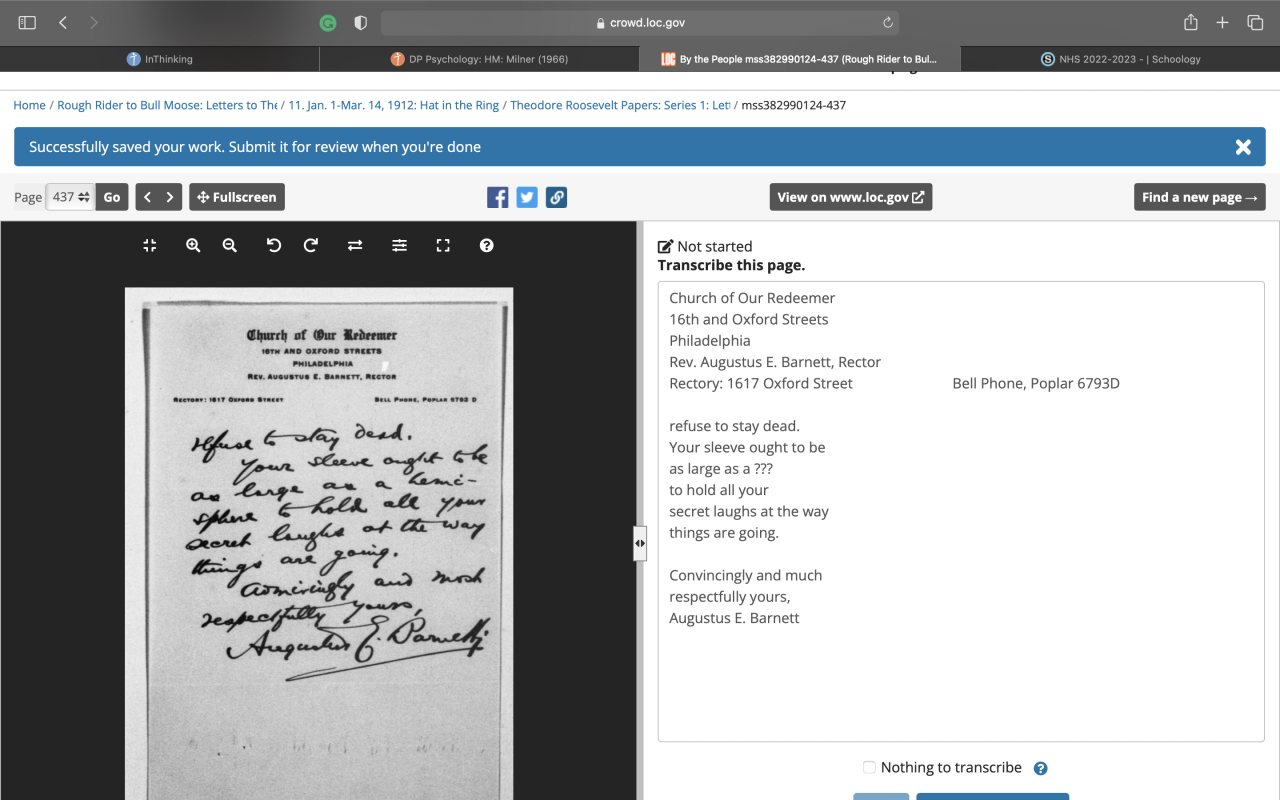 crowd.loc.gov
InThinking
DP Psychology: HM: Milner (1966)
LOC By the People mss382990124-437 (Rough Rider to Bul...
S NHS 2022-2023 - | Schoology
Home / Rough Rider to Bull Moose: Letters to The / 11. Jan. 1-Mar. 14, 1912: Hat in the Ring / Theodore Roosevelt Papers: Series 1: Lett / mss382990124-437
Successfully saved your work. Submit it for review when you're done
Page 437 Go Fullscreen
View on www.loc.gov
Find a new page →
Church of Our Redeemer
16TH AND OXFORD STREETS
PHILADELPHIA
REV. AUGUSTUS E. BARNETT, RECTOR
RECTORY: 1617 OXFORD STREET BELL PHONE, POPLAR 6793 D
refuse to stay dead.
Your sleeve ought to be
as large as a hemi-
sphere to hold all your
secret laughs at the way
things are going.
Admiringly and most
respectfully yours,
Augustus E. Barnett
Not started
Transcribe this page.
Church of Our Redeemer
16th and Oxford Streets
Philadelphia
Rev. Augustus E. Barnett, Rector
Rectory: 1617 Oxford Street Bell Phone, Poplar 6793D
refuse to stay dead.
Your sleeve ought to be
as large as a ???
to hold all your
secret laughs at the way
things are going.
Convincingly and much
respectfully yours,
Augustus E. Barnett
Nothing to transcribe